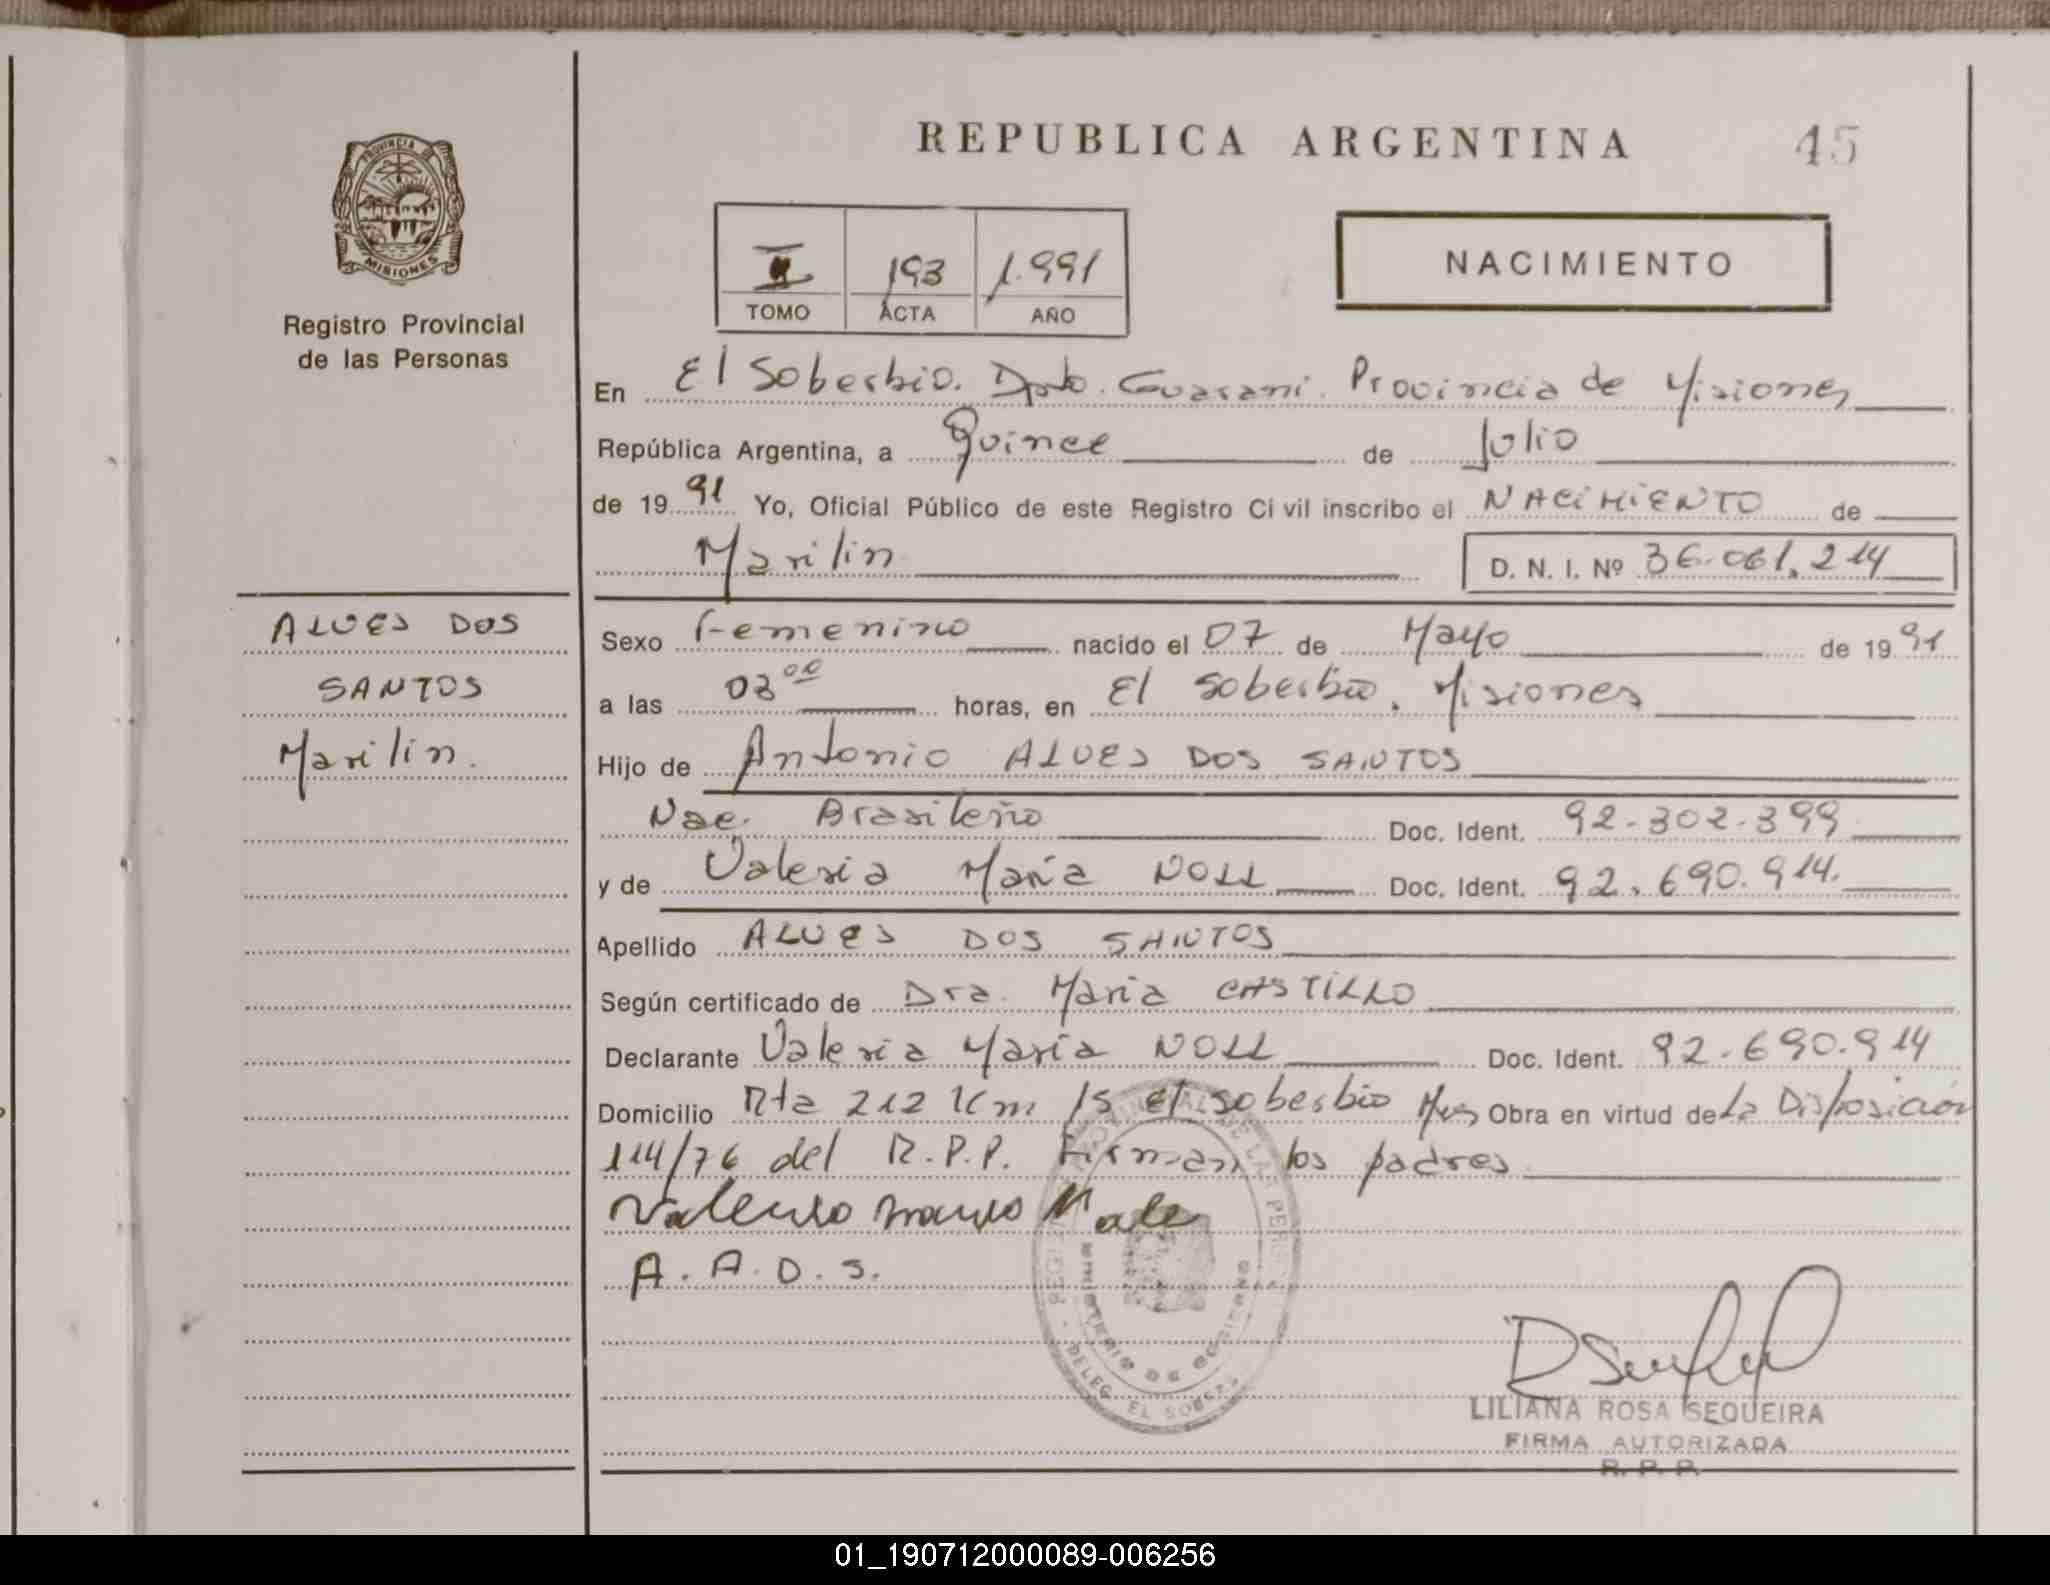 REPUBLICA ARGENTINA 45
PROVINCIA DE
MISIONES
Registro Provincial
de las Personas
II 193 1.991
TOMO ACTA AÑO
NACIMIENTO
En El Soberbio. Dpto. Guarani. Provincia de Misiones
República Argentina, a Quince de Julio
de 1991 Yo, Oficial Público de este Registro Civil inscribo el NACIMIENTO de
Marilin D. N. I. Nº 36.061.214
ALVES DOS
SANTOS
Marilin.
Sexo Femenino nacido el 07 de Mayo de 1991
a las 03 00 horas, en El Soberbio. Misiones
Hijo de Antonio ALVES DOS SANTOS
Nac. Brasileño Doc. Ident. 92.302.399
y de Valeria María NOLL Doc. Ident. 92.690.914.
Apellido ALVES DOS SANTOS
Según certificado de Dra. Maria CASTILLO
Declarante Valeria María NOLL Doc. Ident. 92.690.914
Domicilio Rta 212 Km 15 el soberbio Mnes Obra en virtud de La Disposición
114/76 del R.P.P. Firman los padres
A. A. D. S.
DE LAS PERS
MINISTERIO DE GOBIERNO
DELEG. EL SOBER
LILIANA ROSA SEQUEIRA
FIRMA AUTORIZADA
R. P. P.
01_190712000089-006256